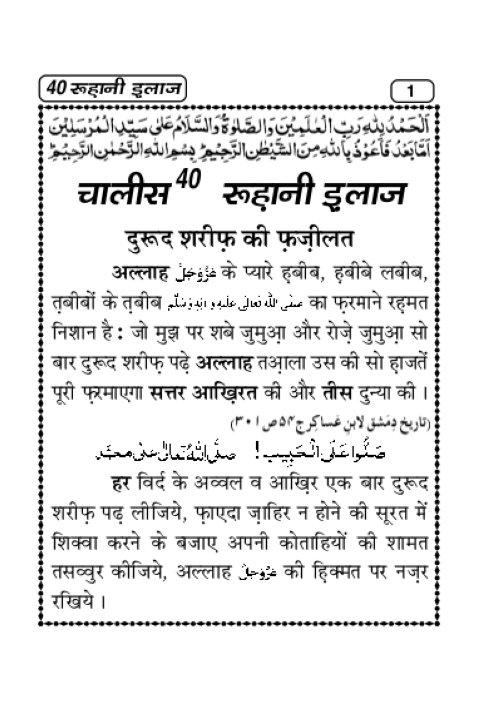 40 रूहानी इलाज
1
اَلْحَمْدُ لِلّٰهِ رَبِّ الْعٰلَمِيْنَ وَالصَّلٰوةُ وَالسَّلَامُ عَلٰى سَيِّدِ الْمُرْسَلِيْنَ
اَمَّا بَعْدُ فَاَعُوْذُ بِاللّٰهِ مِنَ الشَّيْطٰنِ الرَّجِيْمِ ؕ بِسْمِ اللّٰهِ الرَّحْمٰنِ الرَّحِيْمِ ؕ
चालीस 40 रूहानी इलाज
दुरूद शरीफ़ की फ़ज़ीलत
अल्लाह عَزَّوَجَلَّ के प्यारे ह़बीब, ह़बीबे लबीब,
त़बीबों के त़बीब صلَّى اللهُ تعالى عليه واٰلهٖ وسلَّم का फ़रमाने रह़मत
निशान है : जो मुझ पर शबे जुमुआ़ और रोज़े जुमुआ़ सो
बार दुरूद शरीफ़ पढ़े अल्लाह तआ़ला उस की सो ह़ाजतें
पूरी फ़रमाएगा सत्तर आख़िरत की और तीस दुन्या की ।
(تاریخ دِمَشق لابنِ عَساکِر ج ۵۴ ص ۳۰۱)
صَلُّوا عَلَى الْحَبِيْب ! صلَّى اللهُ تعالٰى على محمَّد
हर विर्द के अव्वल व आख़िर एक बार दुरूद
शरीफ़ पढ़ लीजिये, फ़ाएदा ज़ाहिर न होने की सूरत में
शिक्वा करने के बजाए अपनी कोताहियों की शामत
तसव्वुर कीजिये, अल्लाह عَزَّوَجَلَّ की ह़िक्मत पर नज़र
रखिये ।